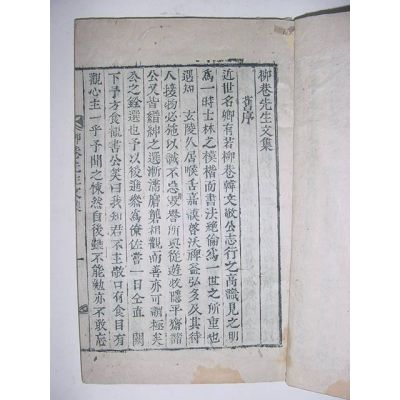 柳巷先生文集
舊序
近世名卿有若柳巷韓文敬公志行之高識見之明
爲一時士林之模楷而書法絶倫爲一世之所重也
選知 玄陵久居喉舌嘉謨啓沃裨益弘多及其待
人接物必施以誠不忌毁譽所與從遊牧隱平齋諸
公又皆縉紳之選漸濡磨礱相觀而善亦可謂極矣
公之銓選也予以後進參爲僚佐嘗一日仝直 闕
下予方食觀書公笑曰我知君不主敬口有食目有
觀心主一乎予聞之悚然自後雖不能勉亦不敢忘
柳巷先生文集
一